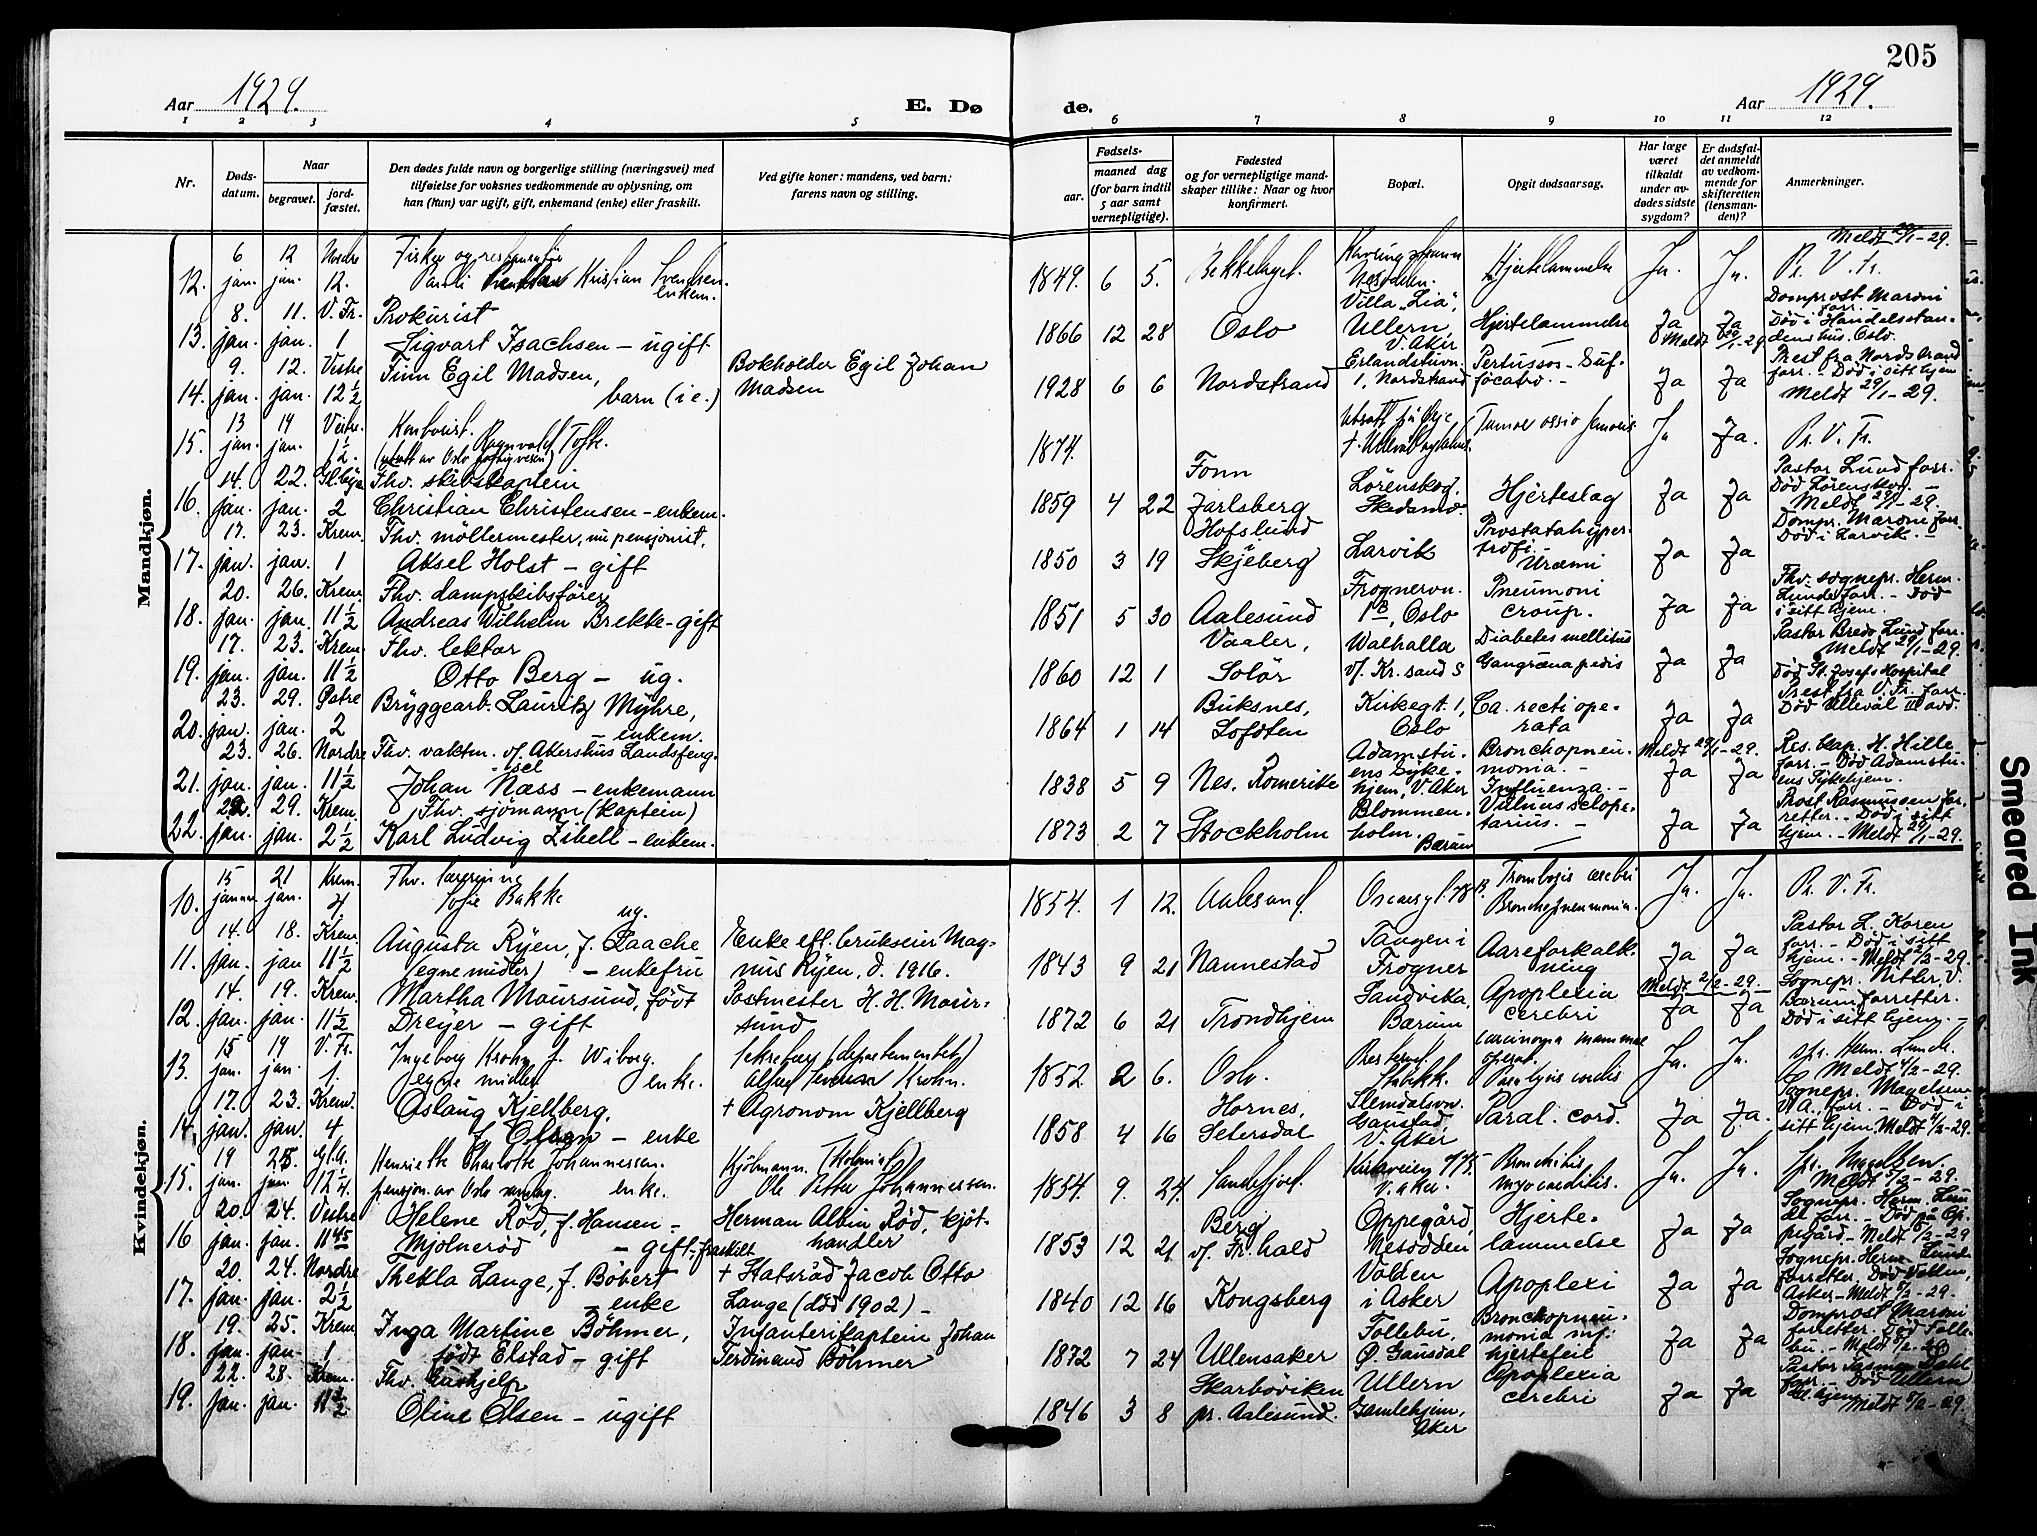 205
Aar 1929.
E. Dø
de.
Aar 1929.
1 2 3 4 5 6 7 8 9 10 11 12
Nr.
Døds-
datum.
Naar
begravet.
jord-
fæstet.
Den dødes fulde navn og borgerlige stilling (næringsvei) med
tilføielse for voksnes vedkommende av oplysning, om
han (hun) var ugift, gift, enkemand (enke) eller fraskilt.
Ved gifte koner: mandens, ved barn:
farens navn og stilling.
Fødsels-
aar.
maaned dag
(for barn indtil
5 aar samt
vernepligtige).
Fødested
og for vernepligtige mand-
skaper tillike: Naar og hvor
konfirmert.
Bopæl.
Opgit dødsaarsag.
Har læge
været
tilkaldt
under av-
dødes sidste
sygdom?
Er dødsfal-
det anmeldt
av vedkom-
mende for
skifteretten
(lensman-
den)?
Anmerkninger.
Mandkjøn.
6 12 Nordre Fisker og
Meldt 29/1-29.
12. jan. jan. 12. Kristian Svendsen
enkem.
1849. 6 5. Bekkelaget. Nesodden. Hjertelammelse Ja. Ja. Pr. V. Fr.
8. 11. V. Fr. Prokurist
Villa "Lia", Domprost Maroni
13. jan. jan. 1 Sigvart Isachsen - ugift
1866 12 28 Oslo Ullern, V. Aker Hjertelammelse Ja Ja forr. Død i Handelsstan-
dens hus. Oslo.
Meldt 29/1-29
9. 12. Vestre Finn Egil Madsen, Bokholder Egil Johan
14. jan. jan. 12 1/2 barn (i e.) Madsen
1928 6 6 Nordstrand 1, Nordstrand Pertussos - Suf-
focatio. - Ja Ja Prest fra Nordstrand
forr. - Død i sitt hjem
Meldt 29/1-29.
13 19 Vestre Kontorist.
15. jan. jan. 1 1/2. Ragnvald Tofte.
1874. Ja Ja. Pr. V. Fr.
14. 22. Fhv. skibskaptein
16. jan. jan. 2 Christian Christensen - enkem.
1859 4 22 Fonn
Jarlsberg Lørenskog.
Skedsmo. Hjerteslag Ja Ja Pastor Lund forr.
Død Lørenskog. -
Meldt 29/1-29.
17. 23. Krem. Fhv. möllermester, nu pensjonist,
17. jan. jan. 1 Aksel Holst - gift
1850 3 19 Hofslund
Skjeberg Larvik Prostatahyper-
trofi.
Uræmi Ja Ja Dompr. Maroni forr.
Død i Larvik. -
20. 26. Krem. Fhv. dampskibsfører
18. jan. jan. 11 1/2 Andreas Wilhelm Brekke - gift
1851 5 30 Aalesund Frognervn.
1 B, Oslo Pneumoni
croup. Ja Ja Fhv. sognepr. Herm.
Lunde forr. - Død
i sitt hjem.
17. 23. Krem. Fhv. lektor
19. jan. jan. 11 1/2 Otto Berg - ug.
1860 12 1 Vaaler,
Solör Walhalla
v/ Kr. sand S Diabetes mellitus
Gangræna pedis Ja Ja Pastor Bredo Lund forr.
Meldt 29/1-29.
Død St. Josefs Hospital
23. 29. Østre Bryggearb. Lauritz Myhre,
20. jan. jan. 2 - enkem.
1864 1 14 Buksnes,
Lofoten Kirkegt. 1,
Oslo Ca. recti ope-
rata Ja Ja Prest fra V. Fr. forr.
Død Ullevål III avd.
Meldt 29/1-29.
23. 26. Nordre Fhv. vaktm. v/ Akershus Landsfeng-
sel
21. jan. jan. 11 1/2 Johan Næss - enkemann
1838 5 9 Nes, Romerike Adamstu-
ens Syke-
hjem, V. Aker Bronchopneu-
monia. -
Influenza. - Ja Ja Res. kap. H. Hille
forr. - Død Adamstu-
ens Sykehjem.
22. 29. Krem. Fhv. sjömann (kaptein)
22. jan. jan. 2 1/2 Karl Ludvig Zibell - enkem.
1873 2 7 Stockholm Blommen-
holm.
Bærum Vulnus sclope-
tarius. - Ja Ja Prost Rasmussen for-
retter. - Død i sitt
hjem. - Meldt 29/1-29.
Kvindekjøn.
15 21 Krem. Fhv. lærerinne
10. januar jan. 4 Sofie Bakke
ug.
1854. 1 12. Aalesund. Trombosis cerebri
Bronchopneumonia. Ja. Ja. Pr. V. Fr.
14. 18. Krem. Augusta Ryen, f. Laache Enke eft. brukseier Mag-
11. jan. jan 11 1/2 (egne midler) - enkefru nus Ryen, d. 1916.
1843 9 21 Nannestad Tangen i
Frogner Aareforkalk-
ning Ja Ja Pastor L. Koren
forr. - Død i sitt
hjem. - Meldt 2/2-29.
14. 19. Krem. Martha Maursund, født Postmester H. H. Maur-
12. jan. jan. 11 1/2 Dreyer - gift sund
1872 6 21 Trondhjem Sandvika,
Bærum Apoplexia
cerebri Meldt 2/2-29.
Ja Ja Sognepr. Nitter, V.
Bærum forretter.
Død i sitt hjem. -
15 19 V. Fr. Ingeborg Krohn f. Wiborg. Sekretær (departementet)
13. jan. jan. 1. egne midler enke. Alfred Krohn.
1852 2 6. Oslo. Stabekk. carcinoma mammae
operat.
Paralysis cordis Ja. Ja. Meldt 4/2-29.
17. 23. Krem. Aslaug Kjellberg, + Agronom Kjellberg
14. jan. jan. 4 f. Olsen - enke
1858 4 16 Hornes,
Setersdal Slemdalsvn.
Gaustad,
V. Aker Paral. cord. Ja Ja. Sognepr. Magelssen
V. A., forr. - Død i
sitt hjem. Meldt 4/2-29.
19 25. Henriette Charlotte Johannessen.
15. jan. jan. 12 1/4. enke. Ole Petter Johannessen.
1854. 9. 24. Sandefjord. Kirkeveien
V. Aker. Bronchitis
myocarditis. Ja. Ja. Meldt 5/2-29.
20. 24. Vestre Helene Röd, f. Hansen - Herman Albin Röd, kjöt-
16 jan. jan. 11 45 Mjölneröd - gift - fraskilt handler
1853 12 21 Berg
v/ Fr. hald Oppegård,
Nesodden Hjerte-
lammelse Ja Ja Sognepr. Herm. Lun-
de forr. - Død på Op-
pegård - Meldt 5/2-29
20. 24. Nordre Thekla Lange, f. Böbert + Statsråd Jacob Otto
17. jan. jan. 2 1/2 - enke Lange (död 1902) -
1840 12 16 Kongsberg Volden
i Asker Apoplexi Ja Ja Sognepr. Herm. Lunde
forretter. Død Volden,
Asker - Meldt 5/2-29.
19. 25. Krem Inga Martine Böhmer, Infanterikaptein Johan
18. jan. jan. 1 född Elstad - gift Ferdinand Böhmer
1872 7 24 Ullensaker Follebu,
Ø. Gausdal Bronchopneu-
monia inf.
hjertefeil Ja Ja Domprost Maroni
forretter. Død Folle-
bu. - Meldt 5/2-29
22. 28. Krem. Fhv. hushjelp
19. jan. jan. 11 1/2 Oline Olsen - ugift
1846 3 8 Skarböviken
pr. Aalesund. Ullern
Gamlehjem,
Aker Apoplexia
cerebri Ja Ja forr. - Død Ullern
Meldt 5/2-29.
Smeared Ink